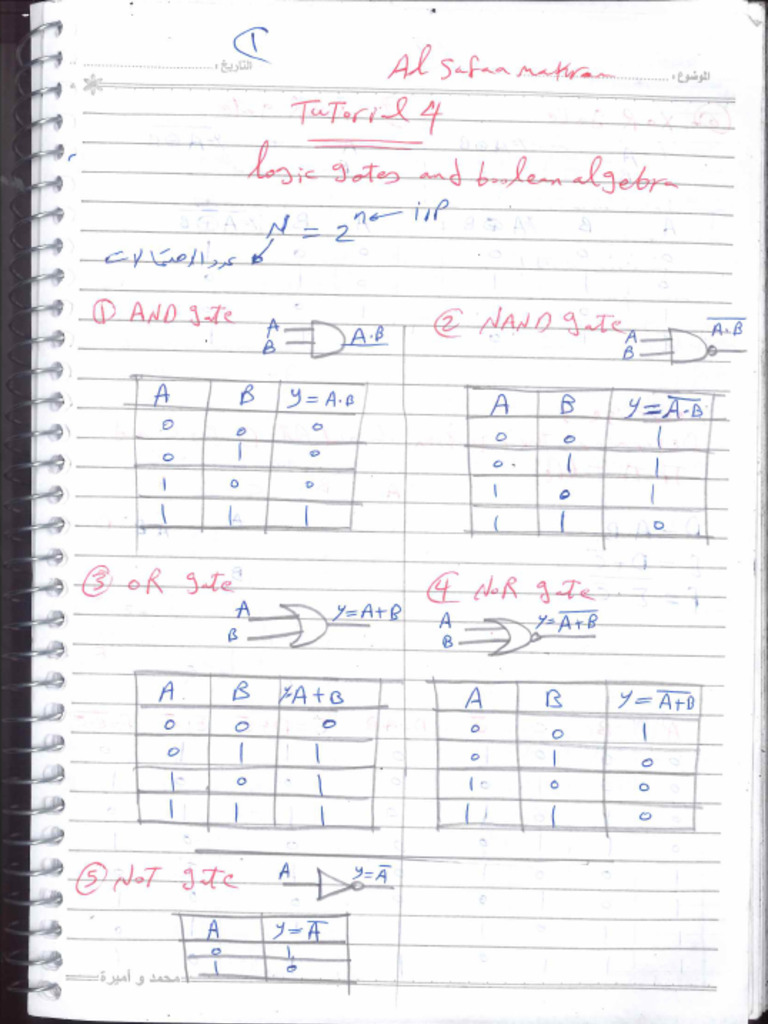 1
التاريخ:
الموضوع:
Al Safaa makram
Tutorial 4
logic gates and boolean algebra
N = 2ⁿ ← i/P
عدد الاحتمالات
① AND gate
A
B
A.B
A B Y = A.B
0 0 0
0 1 0
1 0 0
1 1 1
② NAND gate
A
B
A̅.̅B̅
A B Y = A̅.̅B̅
0 0 1
0 1 1
1 0 1
1 1 0
③ OR gate
A
B
Y=A+B
A B YA+B
0 0 0
0 1 1
1 0 1
1 1 1
④ NOR gate
A
B
Y=A̅+̅B̅
A B Y=A̅+̅B̅
0 0 1
0 1 0
1 0 0
1 1 0
⑤ NOT gate
A
Y=A̅
A Y=A̅
0 1
1 0
محمد و أميرة